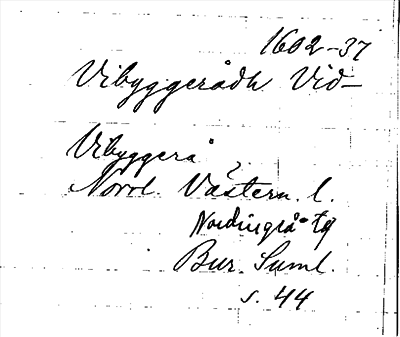 1602-37
Vibyggerådh Vid-
Vibyggerå,
Norrl. Västern. l.
Nordingrå tg
Bur. Suml.
s. 44